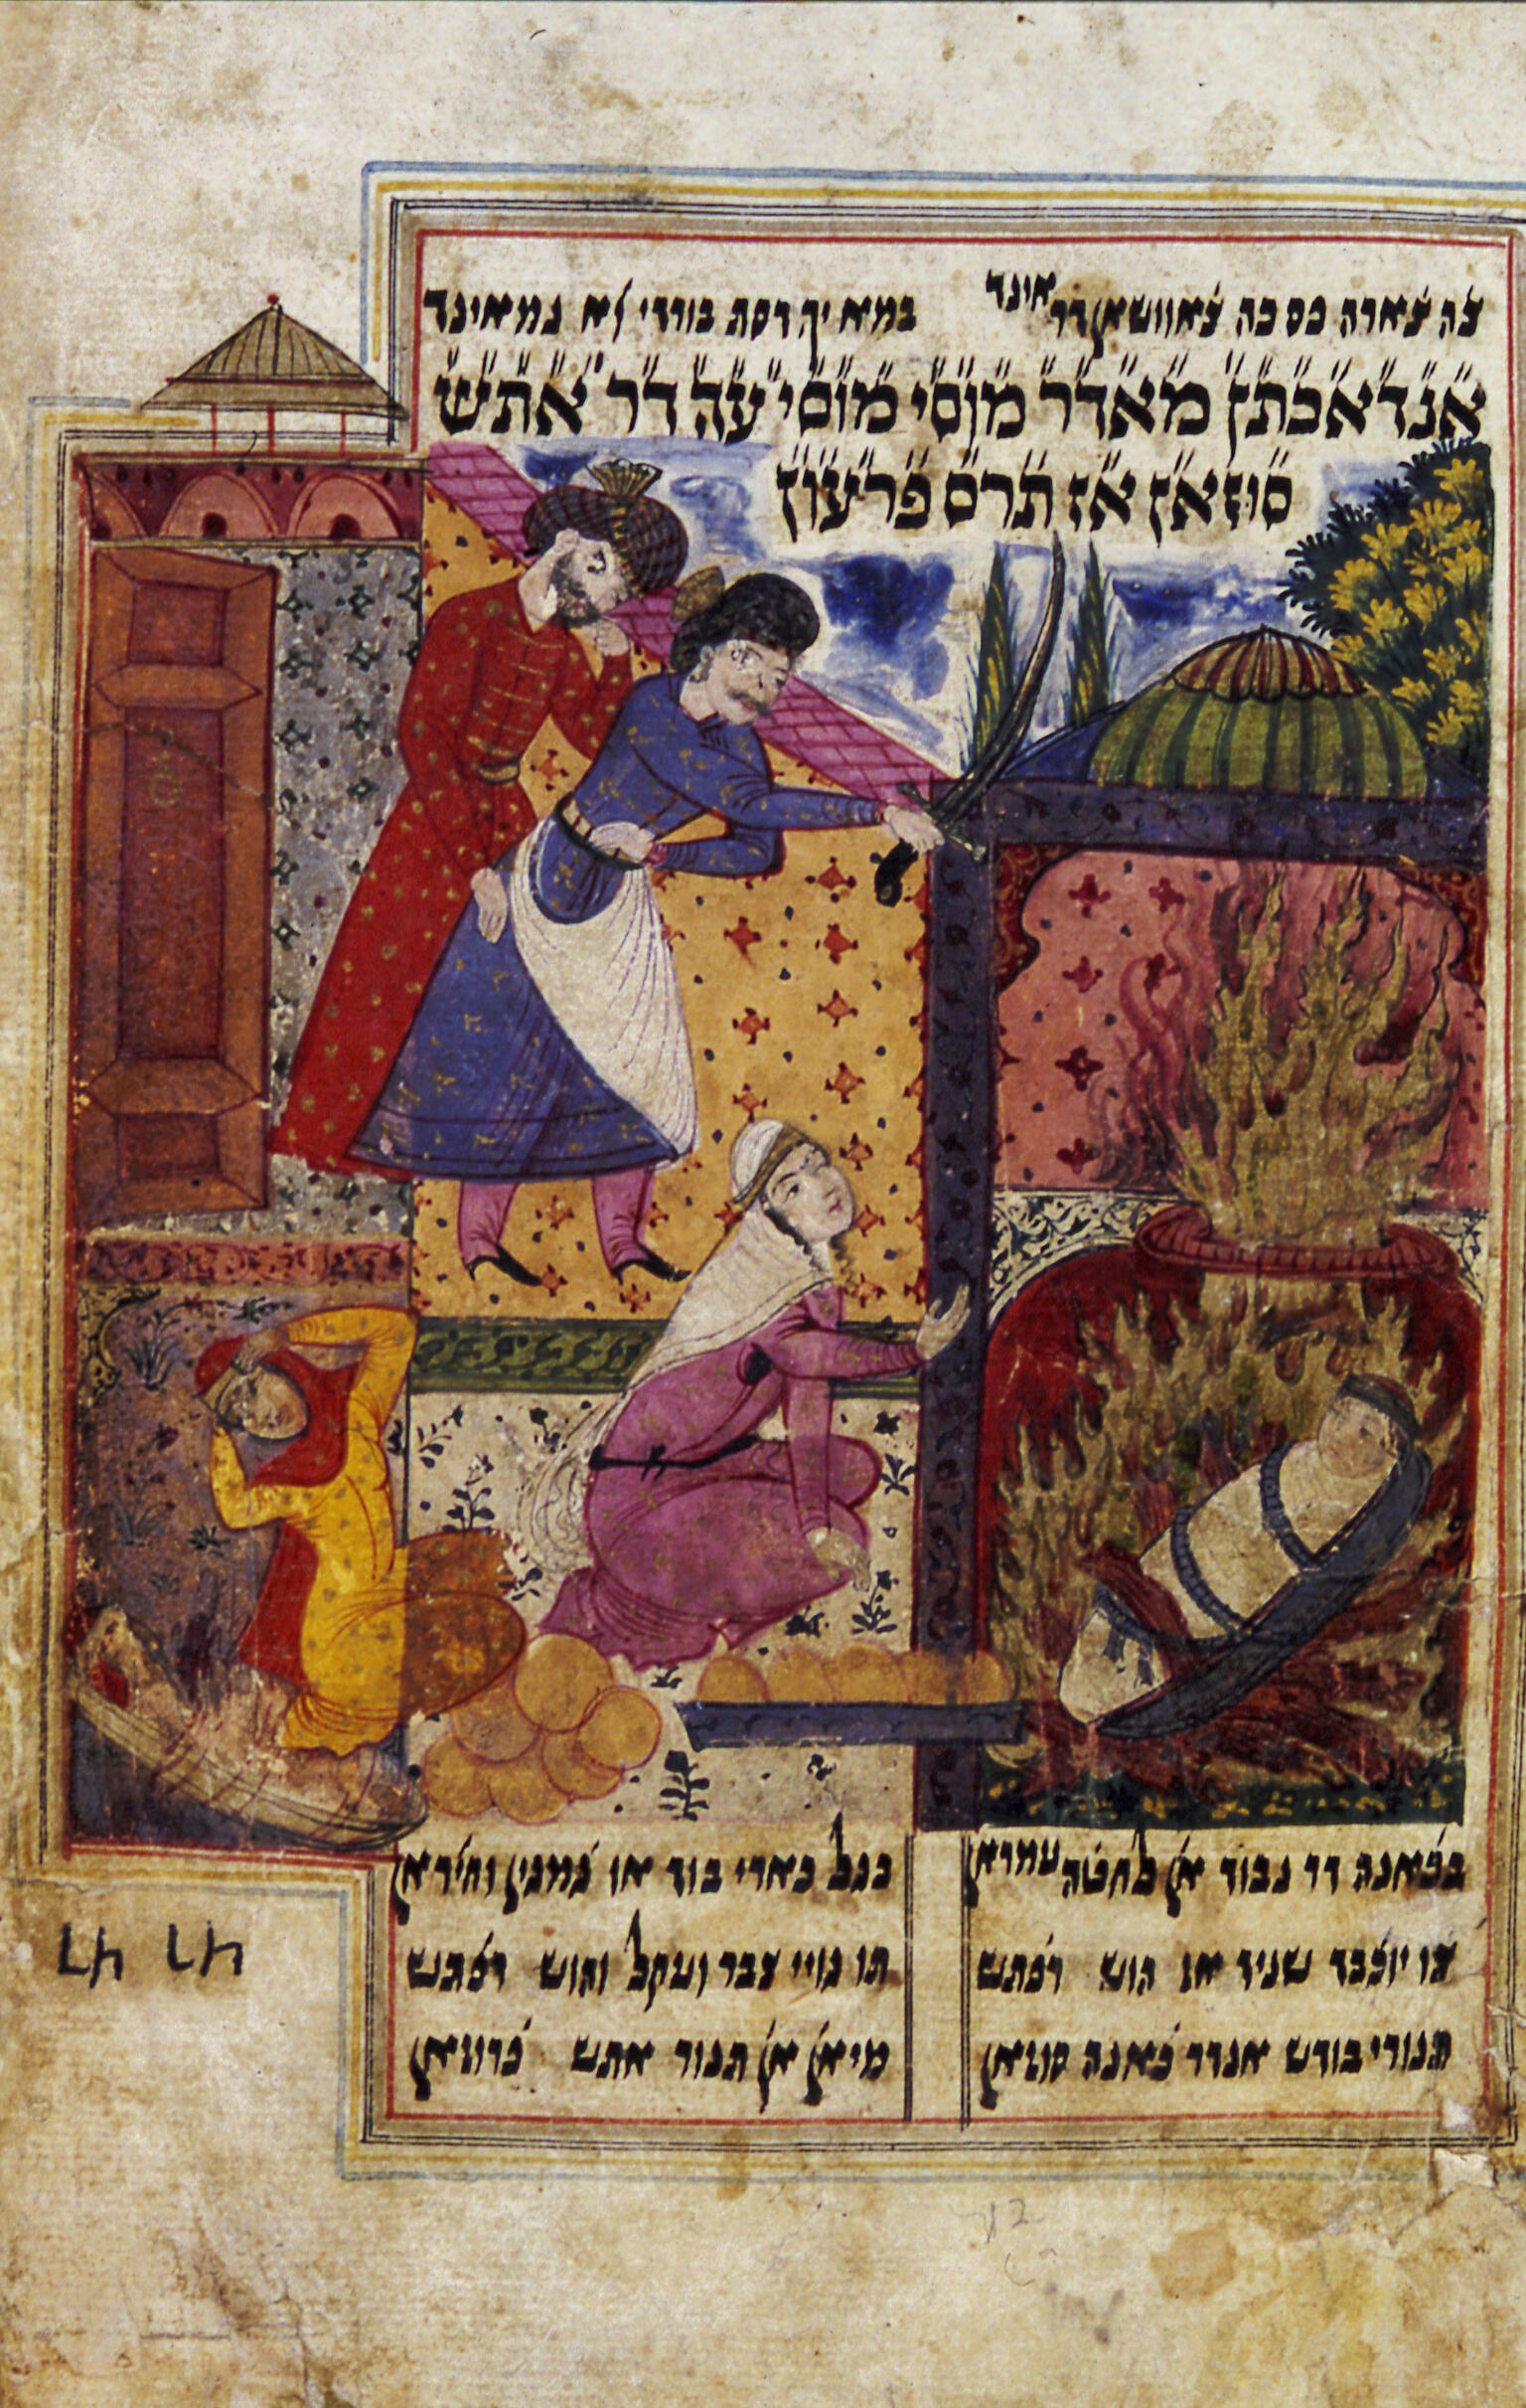 צה צארה כס כה צאוושאן דר אינד במא יך דסת בורדי לא נמאינד
אנדאכתן מאדר מוסי מוסי עה דר אתש
סוזאן אז תרס פרעון
בכאנה דר נבוד אן לחטה עמראן בגל כארי בוד או גמגין וחיראן
צו יוכבד שניד אז הוש רפתש תו גויי צבר ועקל והוש רפתש
תנורי בודש אנדר כאנה סוזאן מיאן אן תנור אתש פרוזאן